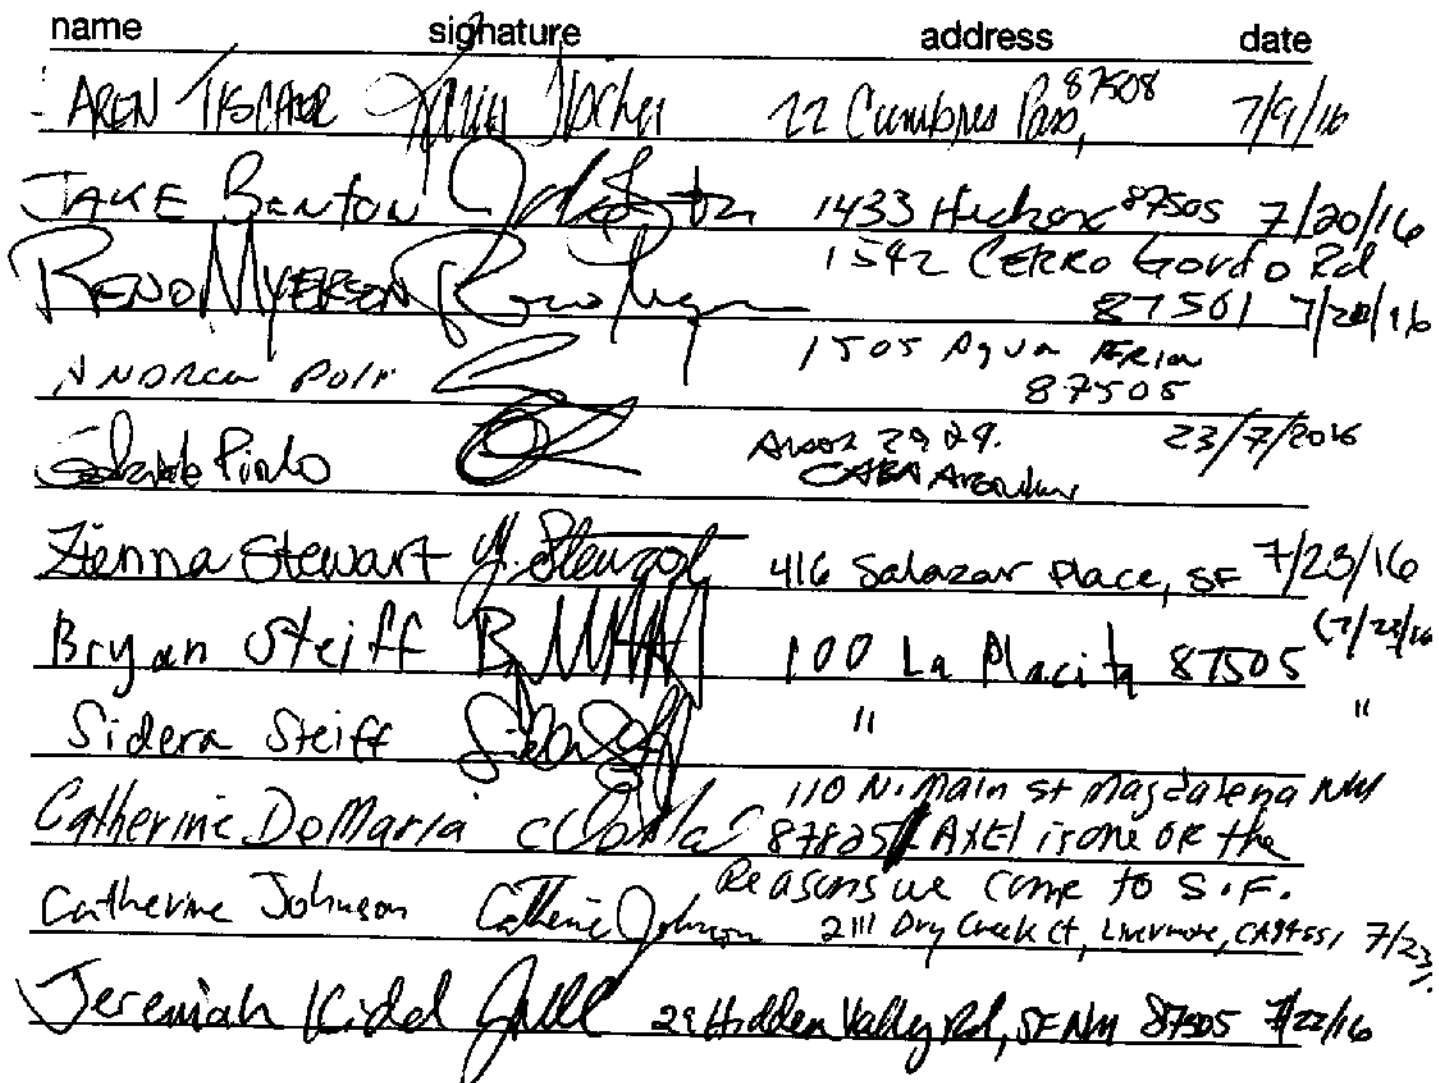 name signature address date
AREN TISCHER 22 Cumbres Pass, 87508 7/9/16
JAKE BENTON 1433 Hickox 87505 7/20/16
RENO MYERSON 1542 CERRO Gordo Rd
87501 7/20/16
ANDREA POLI 1505 Agua FRIA
87505
Pinto 23/7/2016
Zienna Stewart 416 Salazar Place, SF 7/23/16
Bryan Steiff 100 La Placita 87505 (7/23/16
Sidera Steiff " "
110 N. Main St Magdalena NM
Catherine DeMaria 87825 AXEl is one OF the
Reasons we come to S.F.
Catherine Johnson Catherine Johnson 2111 Dry Creek Ct, Livermore, CA 94551 7/23
Jeremiah Kidd 29 Hidden Valley Rd, SF NM 87505 7/22/16